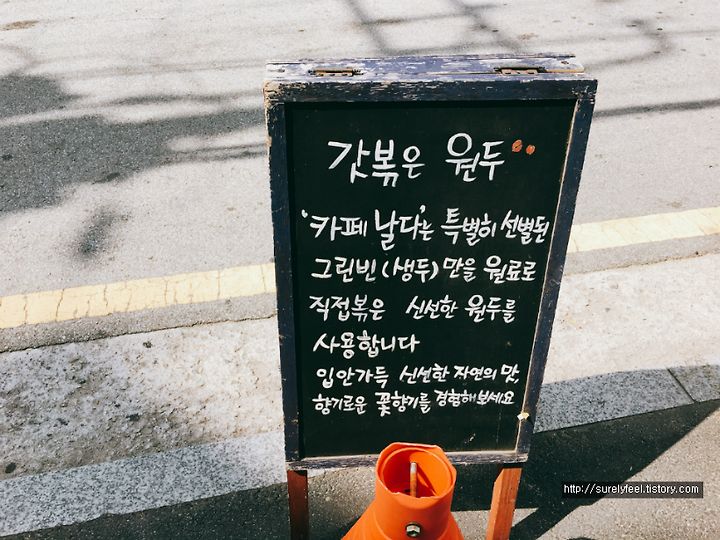 갓볶은 원두
'카페 날다'는 특별히 선별된
그린빈(생두)만을 원료로
직접볶은 신선한 원두를
사용합니다
입안가득 신선한 자연의 맛,
향기로운 꽃향기를 경험해보세요
http://surelyfeel.tistory.com